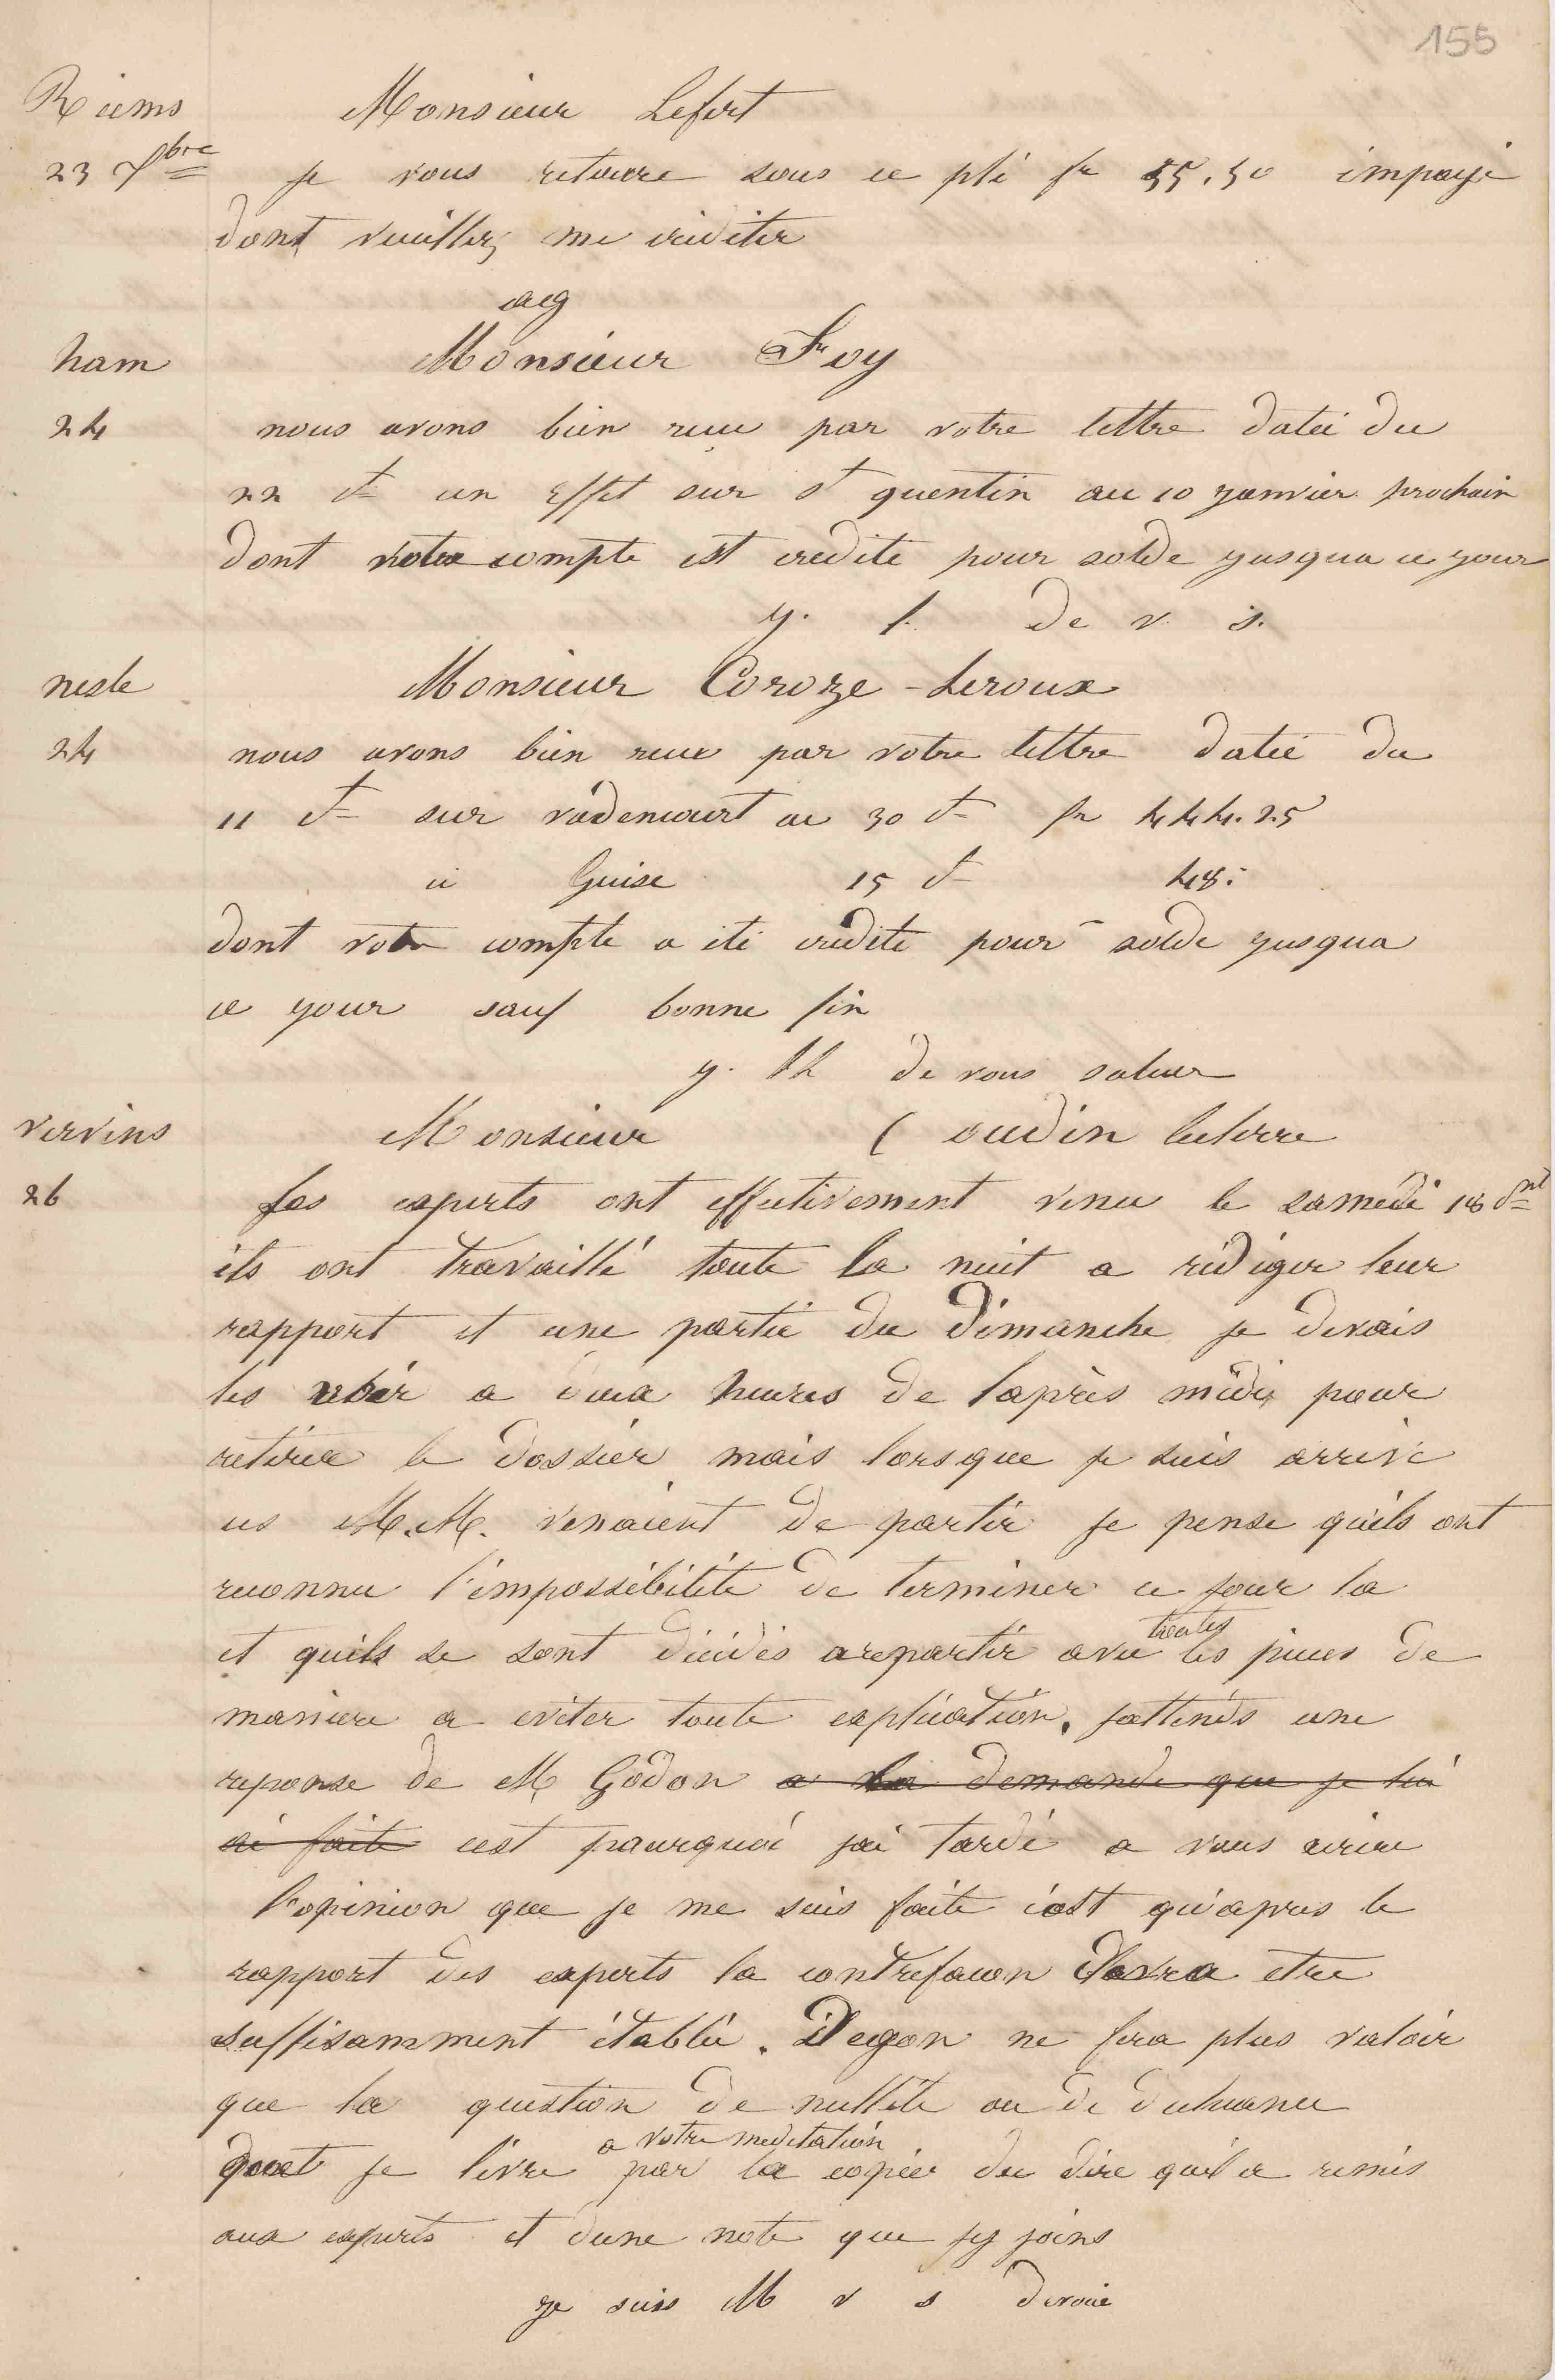 155
Riems
Monsieur Lefort
23 Xbre je vous retourne sous ce pli fr 55.50 impayé
dont veuillez me créditer
Monsieur Foy
ham
24 nous avons bien recu par votre lettre datée du
22 ct un Effet sur st quentin au 10 janvier prochain
dont votre compte est credite pour solde jusqua ce jour
y. f. de v. s.
nesle Monsieur Coroze-Leroux
24 nous avons bien recu par votre lettre datée du
11 ct sur vadencourt au 30 ct fr 444.25
Guise 15 ct 48.
dont votre compte a été credite pour solde jusqua
ce jour sauf bonne fin
y. de vous saluer
vervins Monsieur ( oudin
26 Les experts ont effectivement venu le samedi 18 ct
ils ont travaillé toute la nuit a rédiger leur
rapport et une partie du dimanche je devais
les voir a deux heures de l'après midi pour
retirer le dossier mais lorsque je suis arrivé
ces M.M. venaient de partir je pense qu'ils ont
reconnu l'impossibilité de terminer ce jour la
et quils se sont décidés a repartir avec toutes les pieces de
maniere a eviter toute explication. jattends une
reponse de M Godon a la demande que je lui
ai faite cest pourquoi jai tardé a vous ecrire
l'opinion que je me suis faite c'est qu'apres le
rapport des experts la contrefacon devra etre
suffisamment établie. Degon ne fera plus valoir
que la question de nullité ou de
je livre a votre meditation par la copie du dire qu'il a remis
aux experts et dune note que jy joins
je suis M v s devoué